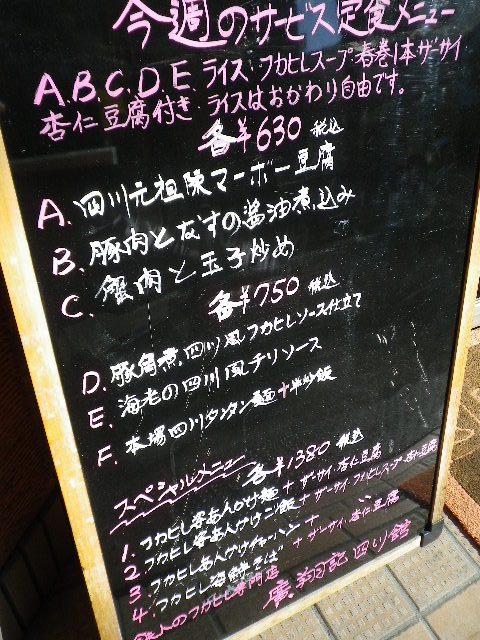 今週のサービス定食メニュー
A.B.C.D.E ライス・フカヒレスープ・春巻1本ザーサイ
杏仁豆腐付き ライスはおかわり自由です。
各¥630 税込
A. 四川元祖陳マーボー豆腐
B. 豚肉となすの醤油煮込み
C. 蟹肉と玉子炒め
各¥750 税込
D. 豚角煮四川風フカヒレソース仕立て
E. 海老の四川風チリソース
F. 本場四川タンタン麺+半炒飯
スペシャルメニュー 各¥1380 税込
1. フカヒレ姿あんかけ麺+ザーサイ・杏仁豆腐
2. フカヒレ姿あんかけご飯+ザーサイ・フカヒレスープ・杏仁豆腐
3. フカヒレあんかけチャーハン+
4. フカヒレ海鮮そば+ザーサイ・杏仁豆腐
鉄人のフカヒレ専門店 廣翔記 四ツ谷館